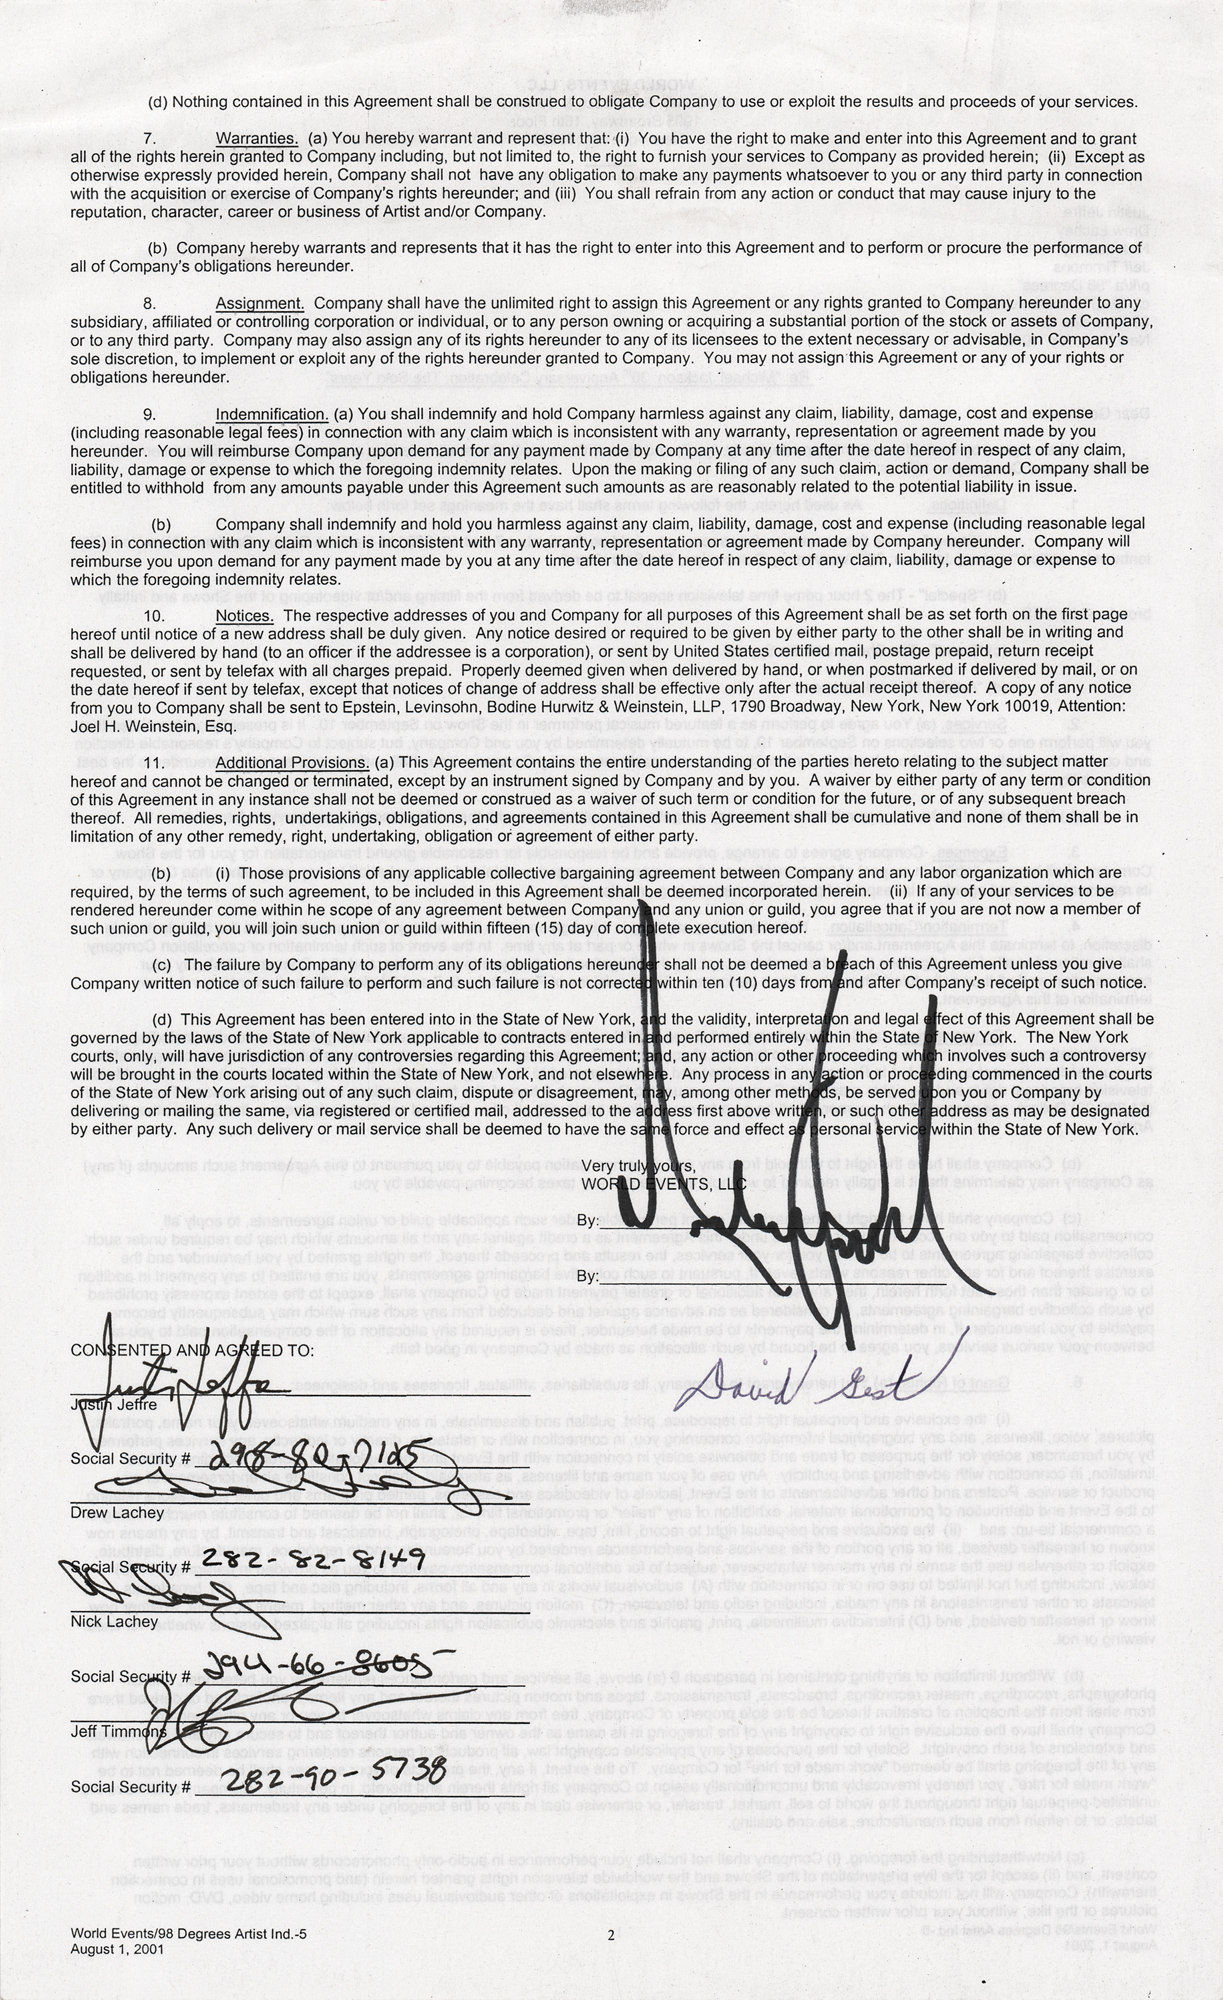 (d) Nothing contained in this Agreement shall be construed to obligate Company to use or exploit the results and proceeds of your services.
7. Warranties. (a) You hereby warrant and represent that: (i) You have the right to make and enter into this Agreement and to grant
all of the rights herein granted to Company including, but not limited to, the right to furnish your services to Company as provided herein; (ii) Except as
otherwise expressly provided herein, Company shall not have any obligation to make any payments whatsoever to you or any third party in connection
with the acquisition or exercise of Company's rights hereunder; and (iii) You shall refrain from any action or conduct that may cause injury to the
reputation, character, career or business of Artist and/or Company.
(b) Company hereby warrants and represents that it has the right to enter into this Agreement and to perform or procure the performance of
all of Company's obligations hereunder.
8. Assignment. Company shall have the unlimited right to assign this Agreement or any rights granted to Company hereunder to any
subsidiary, affiliated or controlling corporation or individual, or to any person owning or acquiring a substantial portion of the stock or assets of Company,
or to any third party. Company may also assign any of its rights hereunder to any of its licensees to the extent necessary or advisable, in Company's
sole discretion, to implement or exploit any of the rights hereunder granted to Company. You may not assign this Agreement or any of your rights or
obligations hereunder.
9. Indemnification. (a) You shall indemnify and hold Company harmless against any claim, liability, damage, cost and expense
(including reasonable legal fees) in connection with any claim which is inconsistent with any warranty, representation or agreement made by you
hereunder. You will reimburse Company upon demand for any payment made by Company at any time after the date hereof in respect of any claim,
liability, damage or expense to which the foregoing indemnity relates. Upon the making or filing of any such claim, action or demand, Company shall be
entitled to withhold from any amounts payable under this Agreement such amounts as are reasonably related to the potential liability in issue.
(b) Company shall indemnify and hold you harmless against any claim, liability, damage, cost and expense (including reasonable legal
fees) in connection with any claim which is inconsistent with any warranty, representation or agreement made by Company hereunder. Company will
reimburse you upon demand for any payment made by you at any time after the date hereof in respect of any claim, liability, damage or expense to
which the foregoing indemnity relates.
10. Notices. The respective addresses of you and Company for all purposes of this Agreement shall be as set forth on the first page
hereof until notice of a new address shall be duly given. Any notice desired or required to be given by either party to the other shall be in writing and
shall be delivered by hand (to an officer if the addressee is a corporation), or sent by United States certified mail, postage prepaid, return receipt
requested, or sent by telefax with all charges prepaid. Properly deemed given when delivered by hand, or when postmarked if delivered by mail, or on
the date hereof if sent by telefax, except that notices of change of address shall be effective only after the actual receipt thereof. A copy of any notice
from you to Company shall be sent to Epstein, Levinsohn, Bodine Hurwitz & Weinstein, LLP, 1790 Broadway, New York, New York 10019, Attention:
Joel H. Weinstein, Esq.
11. Additional Provisions. (a) This Agreement contains the entire understanding of the parties hereto relating to the subject matter
hereof and cannot be changed or terminated, except by an instrument signed by Company and by you. A waiver by either party of any term or condition
of this Agreement in any instance shall not be deemed or construed as a waiver of such term or condition for the future, or of any subsequent breach
thereof. All remedies, rights, undertakings, obligations, and agreements contained in this Agreement shall be cumulative and none of them shall be in
limitation of any other remedy, right, undertaking, obligation or agreement of either party.
(b) (i) Those provisions of any applicable collective bargaining agreement between Company and any labor organization which are
required, by the terms of such agreement, to be included in this Agreement shall be deemed incorporated herein. (ii) If any of your services to be
rendered hereunder come within he scope of any agreement between Company and any union or guild, you agree that if you are not now a member of
such union or guild, you will join such union or guild within fifteen (15) day of complete execution hereof.
(c) The failure by Company to perform any of its obligations hereunder shall not be deemed a breach of this Agreement unless you give
Company written notice of such failure to perform and such failure is not corrected within ten (10) days from and after Company's receipt of such notice.
(d) This Agreement has been entered into in the State of New York, and the validity, interpretation and legal effect of this Agreement shall be
governed by the laws of the State of New York applicable to contracts entered in and performed entirely within the State of New York. The New York
courts, only, will have jurisdiction of any controversies regarding this Agreement; and, any action or other proceeding which involves such a controversy
will be brought in the courts located within the State of New York, and not elsewhere. Any process in any action or proceeding commenced in the courts
of the State of New York arising out of any such claim, dispute or disagreement, may, among other methods, be served upon you or Company by
delivering or mailing the same, via registered or certified mail, addressed to the address first above written, or such other address as may be designated
by either party. Any such delivery or mail service shall be deemed to have the same force and effect as personal service within the State of New York.
Very truly yours,
WORLD EVENTS, LLC
By:
By:
David Gest
CONSENTED AND AGREED TO:
Justin Jeffre
Justin Jeffre
Social Security # [redacted]
Drew Lachey
Social Security # [redacted]
Nick Lachey
Social Security # [redacted]
Jeff Timmons
Social Security # [redacted]
World Events/98 Degrees Artist Ind.-5
August 1, 2001
2